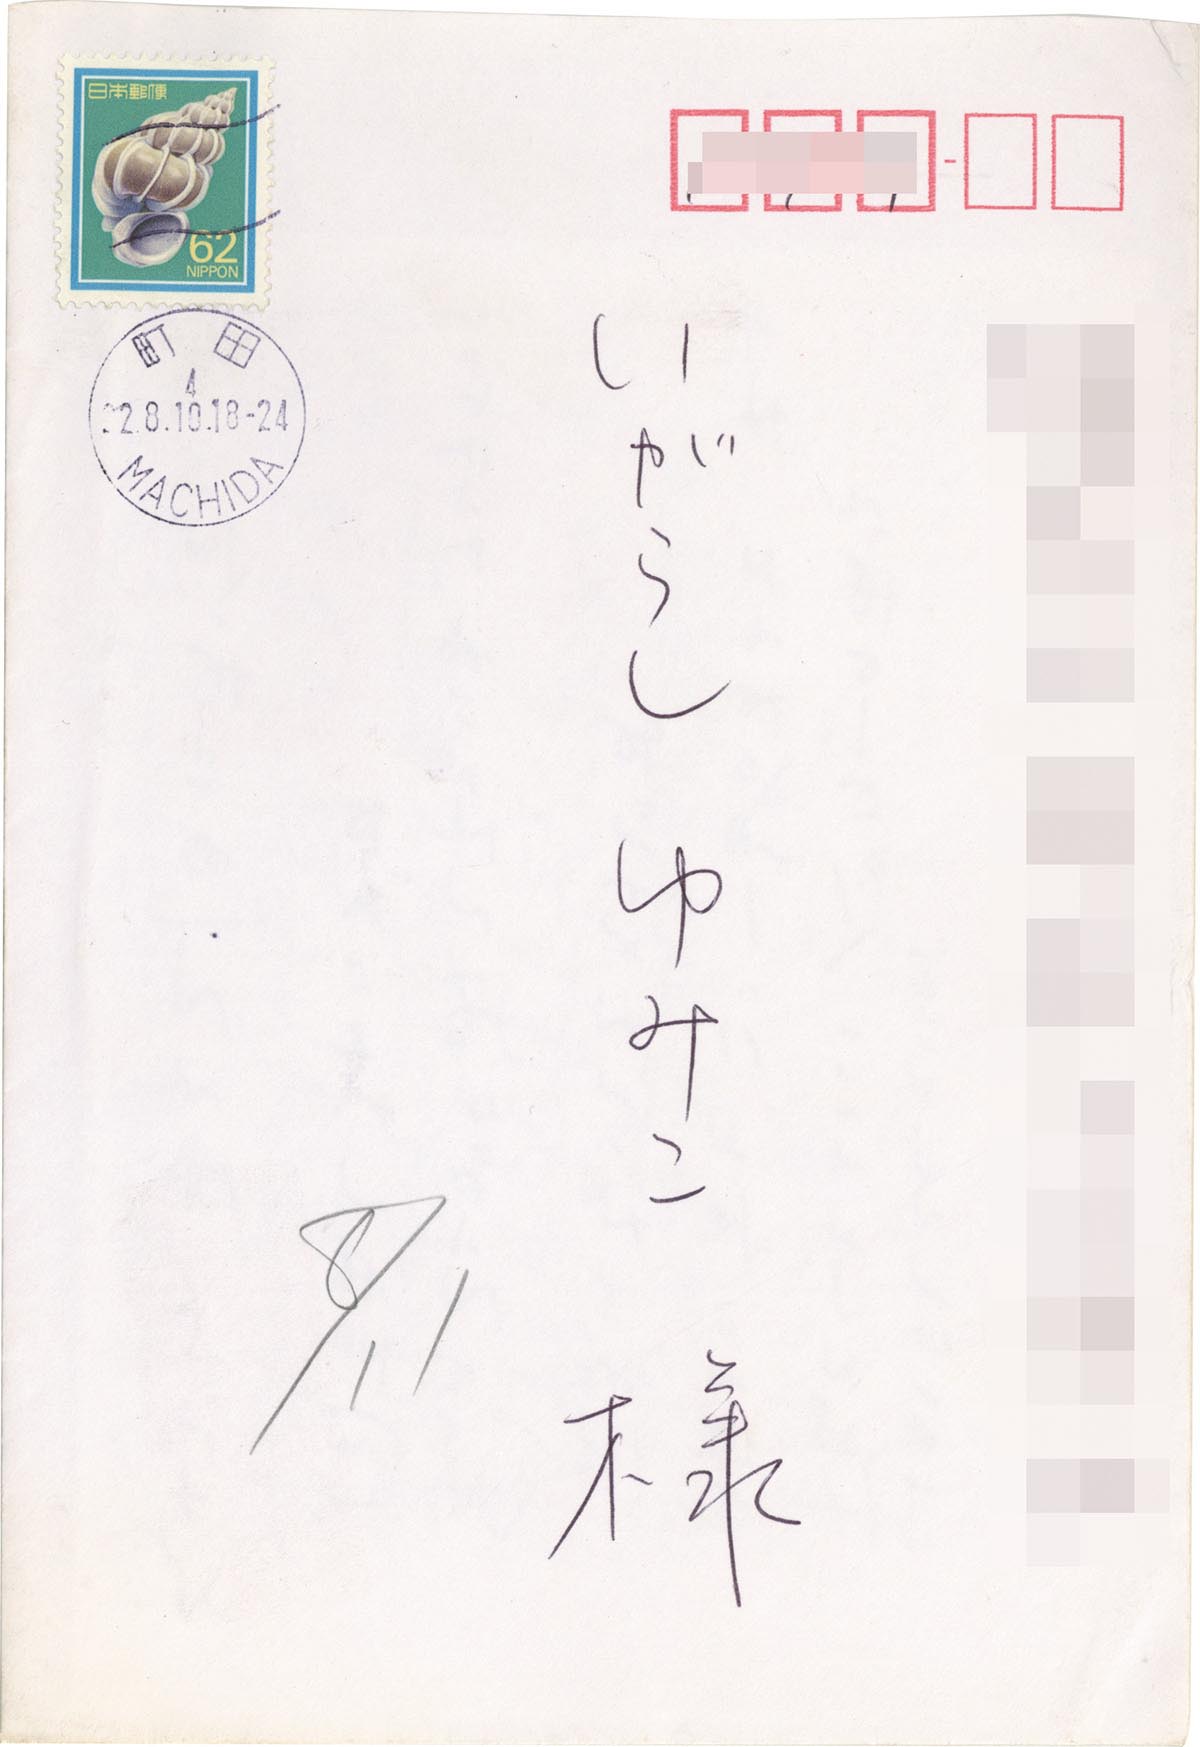 日本郵便
62
NIPPON
町田
4
2.8.10.18-24
MACHIDA
いがらし ゆみこ 様
8/11